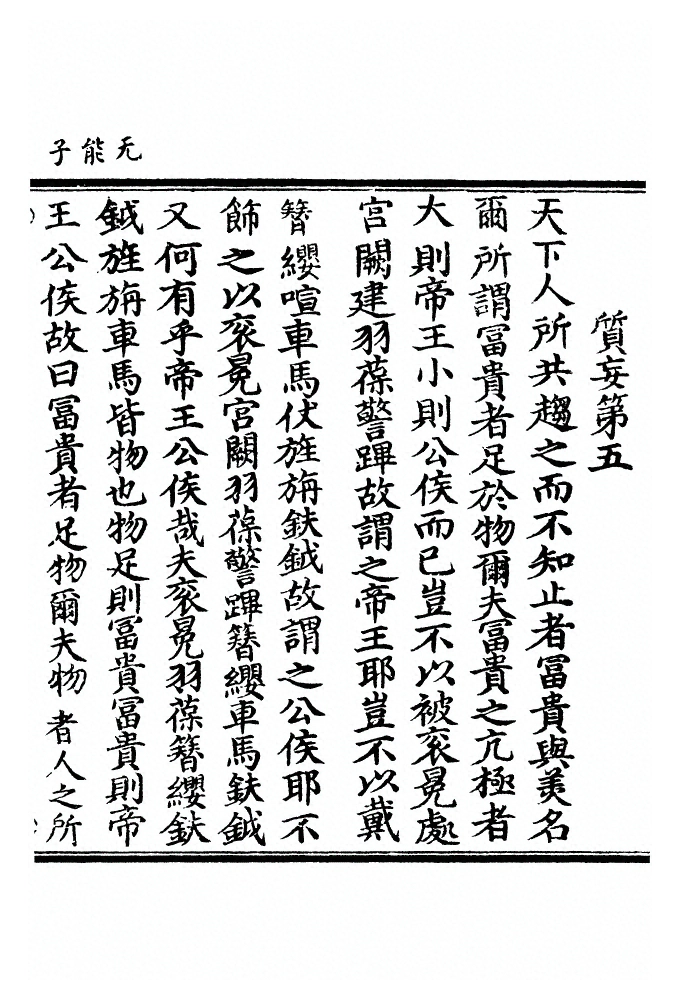 无能子
質妄第五
天下人所共趨之而不知止者冨貴與美名
爾所謂冨貴者足於物爾夫冨貴之亢極者
大則帝王小則公侯而已豈不以被衮冕處
宫闕建羽葆警蹕故謂之帝王耶豈不以戴
簪纓喧車馬仗旌旃鈇鉞故謂之公侯耶不
飾之以衮冕宫闕羽葆警蹕簪纓車馬鈇鉞
又何有乎帝王公侯哉夫衮冕羽葆簪纓鈇
鉞旌旃車馬皆物也物足則冨貴冨貴則帝
王公侯故曰冨貴者足物爾夫物者人之所